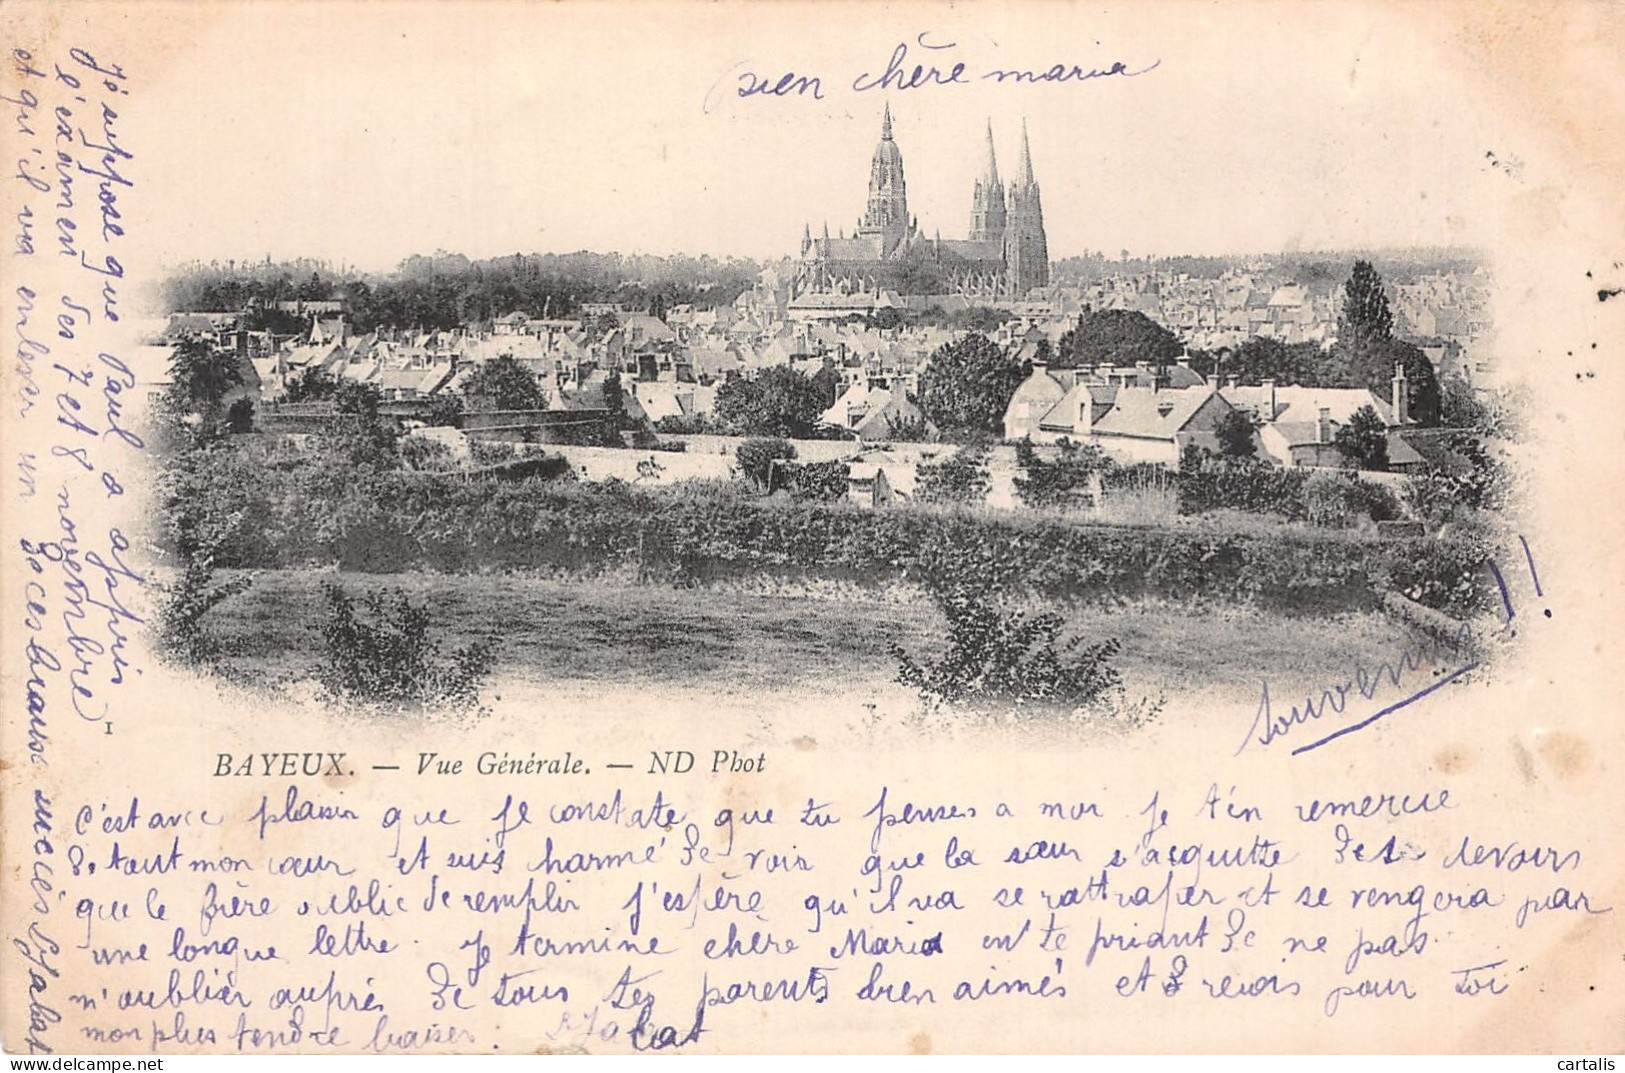 bien chère maria
Souvenir !!
1
BAYEUX. — Vue Générale. — ND Phot
c'est avec plaisir que je constate que tu penses a moi je t'en remercie
de tout mon cœur et suis harmé de voir que la sœur s'acquitte des devoirs
que le frère oublie de remplir j'espère qu'il va se rattraper et se vengera par
une longue lettre. je termine chère Maria en te priant de ne pas
m'oublier auprès de tous tes parents bien aimés et reçois pour toi
mon plus tendre baiser.
J'é suppose que Paul a appris
l'examen des 7 et 8 novembre
et qu'il va enlever un de ces beaux succès
cartalis